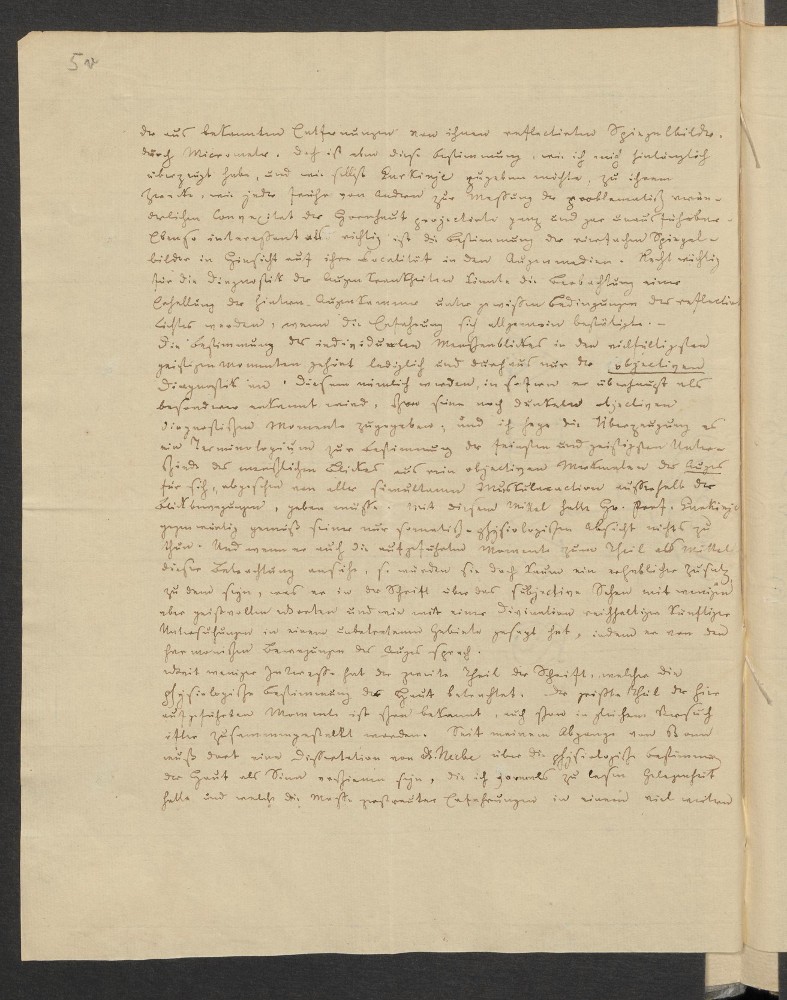 5v
der aus bekannten Entfernungen von ihnen reflectirten Spiegelbilder,
durch Micrometer. Daß ist aber diese Bestimmung, wie ich mich hinlänglich
überzeugt habe, und wie selbst Purkinje zugeben möchte, zu ihrem
Zwecke, wie jede frühr von Andern zur Messung der problematisch verän-
derlichen Convexitat der Hornhaut projectirte ganz und gar unausführbar.
Ebenso interessant als richtig ist die Bestimmung der vierfachen Spiegel-
bilder in Hinsicht auf ihre Localität in den Augenmedien. Recht wichtig
für die Diagnostik der Augenkrankheiten könnte die Beobachtung einer
Erhellung der hintern Augenkammer unter gewissen Bedingungen des reflectirten
Lichtes werden, wenn die Erfahrung sich allgemein bestätigte. –
Die Bestimmung des individuellen Menschenblickes in den vielfältigsten
geistigen Momenten gehört lediglich und durchaus nur der objectiven
Diagnostik an. Diesem nämlich werden, in sofern er überhaupt als
besonderer erkannt wird, schon seine noch dunkeln objectiven
diagnostischen Momente zugegeben; und ich hege die Überzeugung es
ein Terminologium zur Bestimmung der feinsten und geistigsten Unter-
schiede des menschlichen Blickes aus rein objectiven Merkmalen des Auges
für sich, abgesehen von aller simultanen Muskularaction außerhalb der
Blickbewegungen, geben müsse. Mit diesem Mittel hatte Hr. Prof. Purkinje
gegenwärtig gemäß seiner nur somatisch-physiologischen Absicht nichts zu
thun. Und wenn er auch die aufgeführten Momente zum Theil als Mittel
dieser Betrachtung ansähe, so würden sie doch kaum ein erheblicher Zusatz
zu dem seyn, was er in der Schrift über das subjective Sehen mit wenigen
aber geistvollen Worten und wie mit einer Divination reichhaltiger künftiger
Untersuchungen in einem unbetretenen Gebiete gesagt hat, indem er von den
harmonischen Bewegungen des Auges sprach.
Weit weniger Interesse hat der zweite Theil der Schrift, welcher die
physiologische Bestimmung der Haut betrachtet. Der größte Theil der hier
aufgeführten Momente ist schon bekannt, auch schon in gleichem Versuch
öfter zusammengestellt worden. Seit meinem Abgange von Bonn
muß dort eine Dissertation von über die physiologische Bestimmung
der Haut als Sinn erschienen seyn, die ich vormals zu lesen Gelegenheit
hatte und welche die Masse zerstreuter Erfahrungen in einem viel weitern